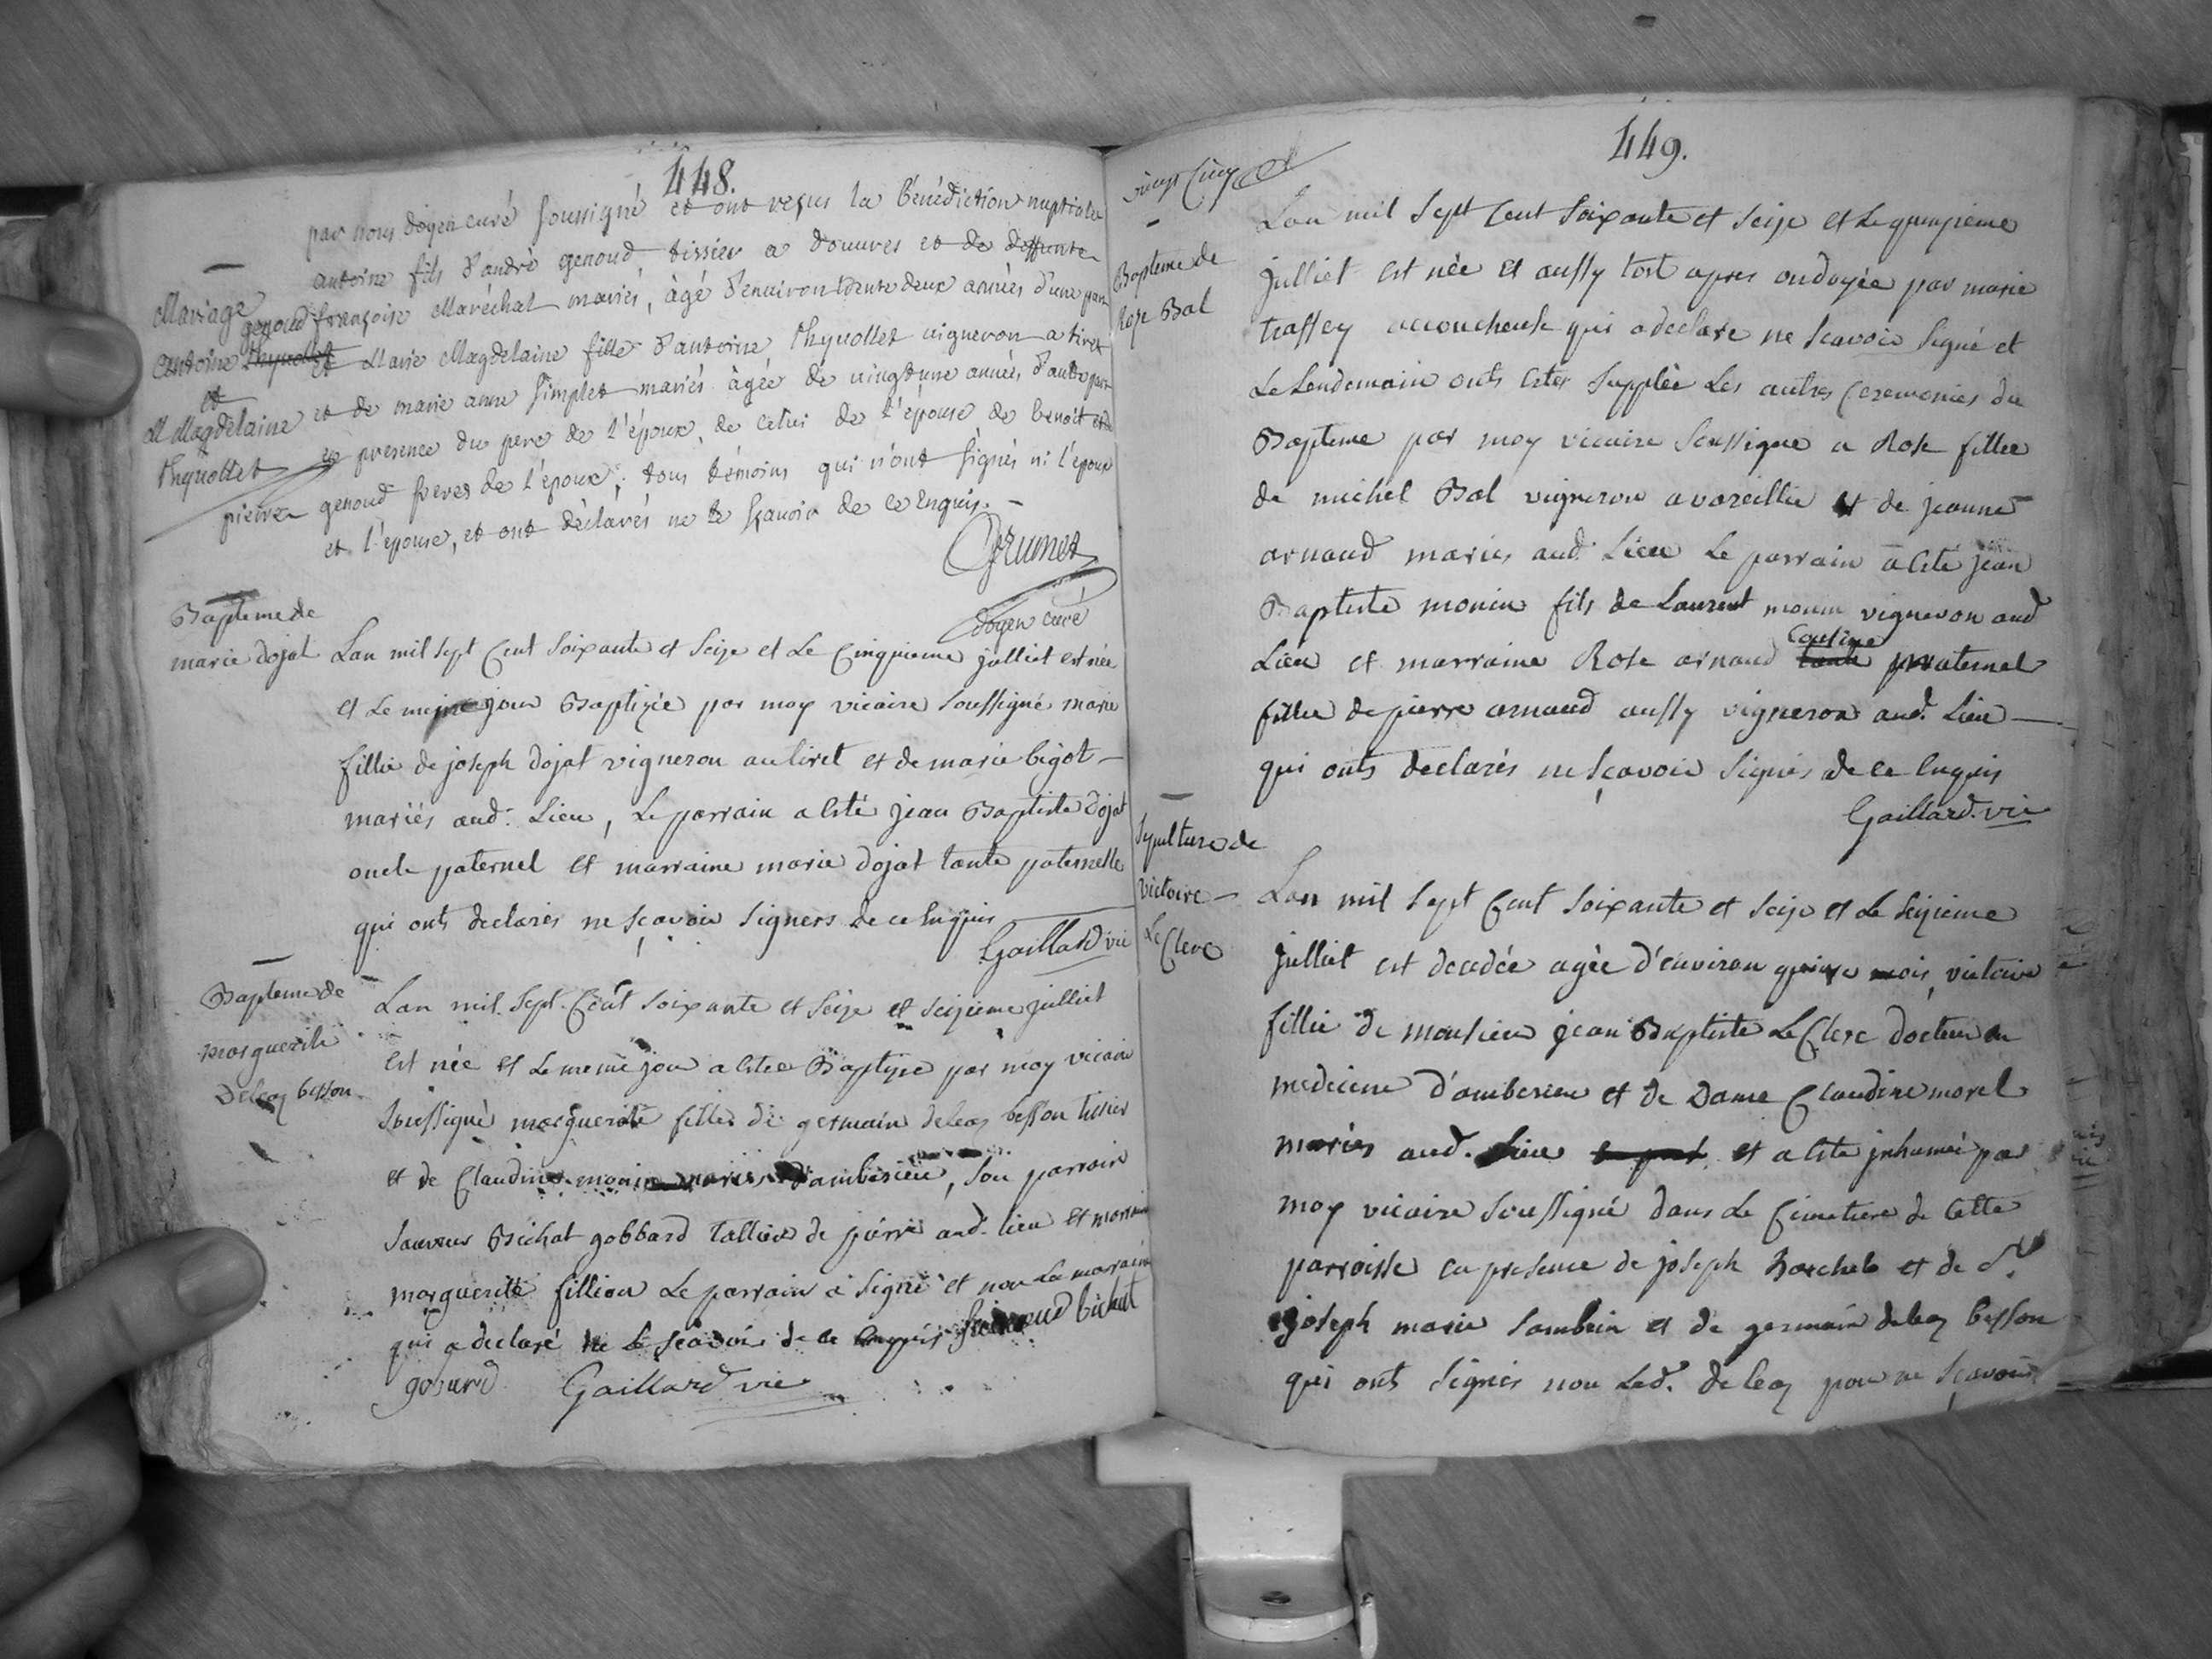 448.
par nous doyen curé soussigné et ont reçus la bénédiction nuptiale
Mariage
antoine genoud thyvollet
et
M Magdelaine
thyvollet
antoine fils d'andré genoud tissier a douvres et de deffunte
françoise Maréchal mariés, âgé d'environ trente deux années d'une part
et Marie Magdelaine fille d'antoine thyvollet vigneron a tiret
et de marie anne simplet mariés âgée de vingt une années d'autre part
en presence du pere de l'époux, de celui de l'épouse de benoit et de
pierre genoud freres de l'époux, tous témoins qui n'ont signés ni l'époux
et l'épouse, et ont déclarés ne le sçavoir de ce enquis.
Grumet
doyen curé
Bapteme de
marie dojat
Lan mil sept Cent soixante et seize et Le Cinquieme julliet est née
et Le meme jour Baptizée par moy vicaire soussigné marie
fillie de joseph dojat vigneron au tiret et de marie bigot
mariés aud. Lieu, Le parrain a été jean Baptiste dojat
oncle paternel et marraine marie dojat tante paternelle
qui onts declarés ne sçavoir signers de ce enquis
Gaillard vic
Bapteme de
marguerite
deleaz besson
Lan mil sept Cent soixante et seize et seizieme julliet
est née et Le meme jour a étée Baptyse par moy vicaire
soussigné marguerite fille de germain deleaz besson tissier
et de Claudine monin mariés d'ambérieu, son parrain
Bichat gobbard tallieur de pierre aud. lieu et marraine
marguerite fillion Le parrain a signé et non La marraine
qui a declaré ne le sçavoir de ce enquis bichat
gobard Gaillard vic
449.
vingt cinq
Bapteme de
Rose Bal
Lan mil sept Cent soixante et seize et Le quinzieme
julliet est née et aussy tost apres ondoyée par marie
traffey accoucheuse qui a declare ne scavoir signé et
Le Lendemain onts étés supplée Les autres Ceremonies du
Bapteme par moy vicaire soussigne a Rose fillie
de michel Bal vigneron a vareillie et de jeanne
arnaud maries aud. Lieu Le parrain a été jean
Baptiste monin fils de Laurent monin vigneron aud
Lieu et marraine Rose arnaud tante Cousine maternel
fillie de pierre arnaud aussy vigneron aud. Lieu
qui onts declarés ne sçavoir signés de ce enquis
Gaillard. vic
Sepulture de
victoire
Le Clerc
Lan mil sept Cent soixante et seize et Le seizieme
julliet est decedée agée d'environ quinze mois, victoire
fillie de monsieur jean Baptiste Le Clerc docteur en
medecine d'amberieu et de Dame Claudine morel
mariés aud. Lieu et a été jnhumée par
moy vicaire soussigné dans Le Cimetiere de Cette
parroisse en presence de joseph et de Sr
joseph marie sambin et de germain deleaz besson
qui onts signés non Led. deleaz pour ne sçavoir